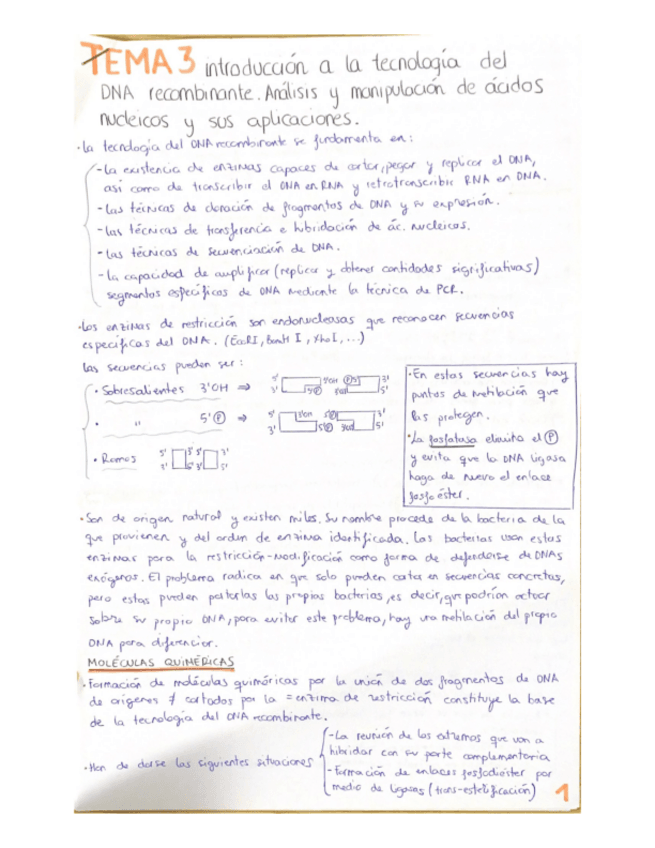 TEMA 3 introducción a la tecnología del
DNA recombinante. Análisis y manipulación de ácidos
nucleicos y sus aplicaciones.
·La tecnología del DNA recombinante se fundamenta en:
-La existencia de enzimas capaces de cortar, pegar y replicar el DNA,
así como de transcribir el DNA en RNA y retrotranscribir RNA en DNA.
-Las técnicas de clonación de fragmentos de DNA y su expresión.
-Las técnicas de transferencia e hibridación de ác. nucleicos.
-Las técnicas de secuenciación de DNA.
-La capacidad de amplificar (replicar y obtener cantidades significativas)
segmentos específicos de DNA mediante la técnica de PCR.
·Los enzimas de restricción son endonucleasas que reconocen secuencias
específicas del DNA. (EcoRI, BamH I, Xho I, ...)
Las secuencias pueden ser:
· Sobresalientes 3'OH ⇒
· " 5' P ⇒
· Romos
5' 3'OH P5' 3'
3' 5'
5' 3'OH 5'P 3'
3' 5'P 5'
5' 5' 5' 3'
3' 5' 3' 5'
·En estas secuencias hay
puntos de metilación que
las protegen.
·La fosfatasa elimita el P
y evita que la DNA ligasa
haga de nuevo el enlace
fosfoéster.
·Son de origen natural y existen miles. Su nombre procede de la bacteria de la
que provienen y del orden de enzima identificada. Las bacterias usan estas
enzimas para la restricción-modificación como forma de defenderse de DNAs
exógenos. El problema radica en que solo pueden cortar en secuencias concretas,
pero estas pueden portarlas las propias bacterias, es decir, que podrían actuar
sobre su propio DNA, para evitar este problema, hay una metilación del propio
DNA para diferenciar.
MOLÉCULAS QUIMÉRICAS
·Formación de moléculas quiméricas por la unión de dos fragmentos de DNA
de orígenes ≠ cortados por la = enzima de restricción constituye la base
de la tecnología del DNA recombinante.
·Han de darse las siguientes situaciones
-La reunión de los extremos que van a
hibridar con su parte complementaria
-Formación de enlaces fosfodiéster por
medio de ligasas (trans-estelificación)
1